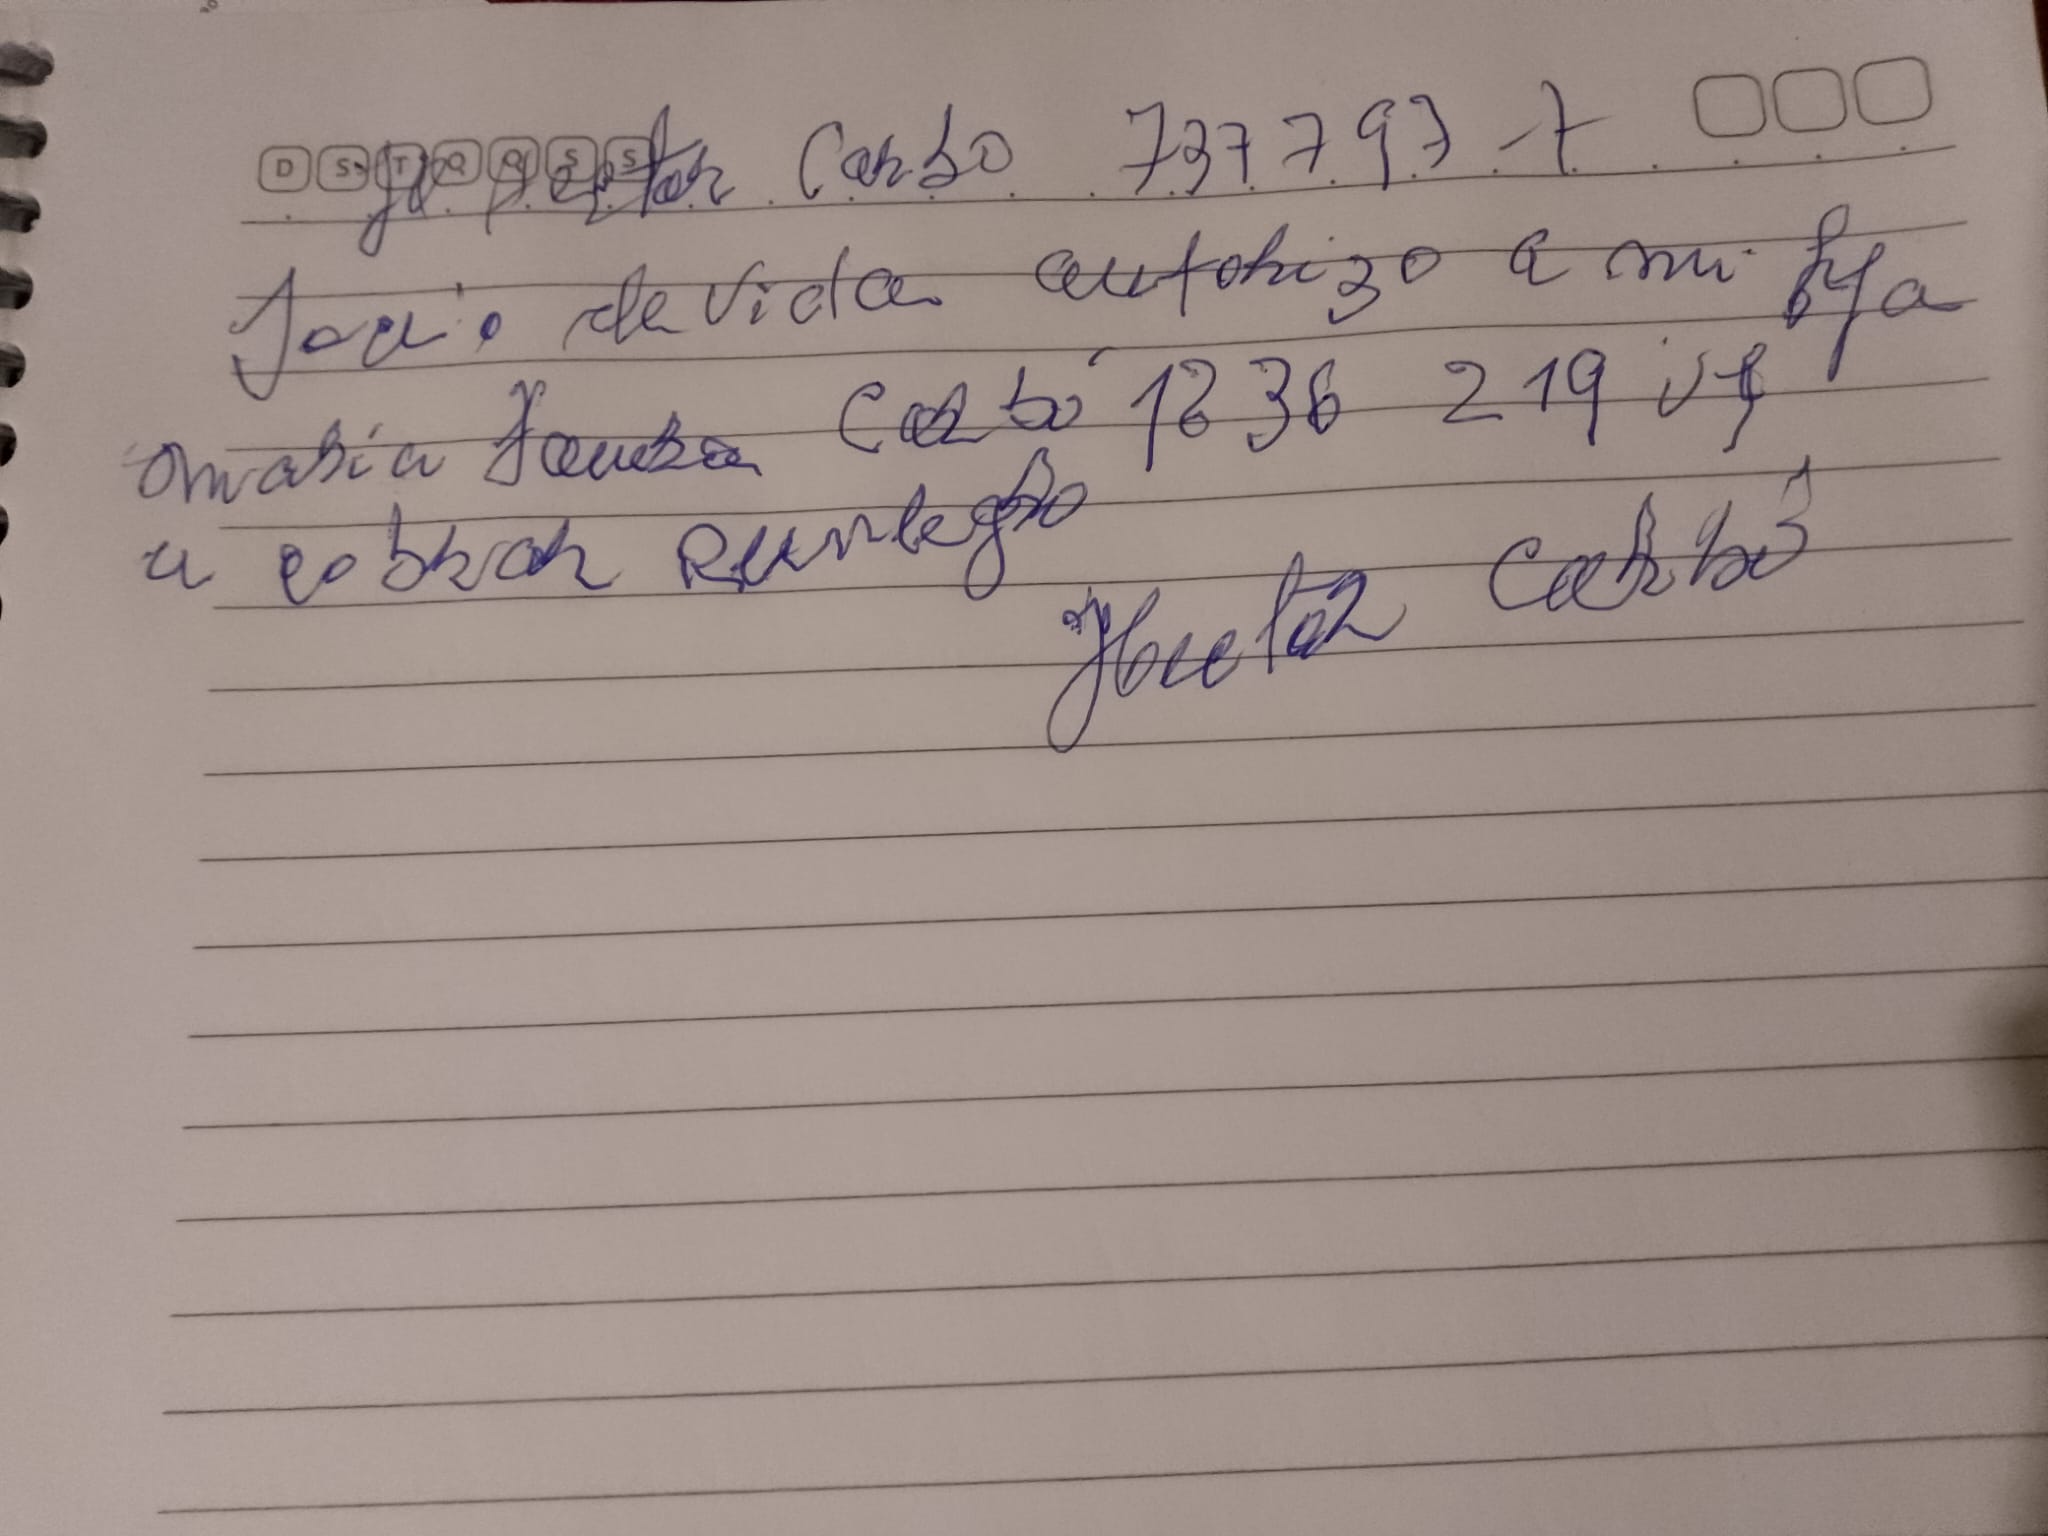 D S T Q Q S S
Carbo 737797-7
Socio de Vida autorizo a mi hija
maria Laura Carbó 1236 219
a cobrar Reintegro
Carbó